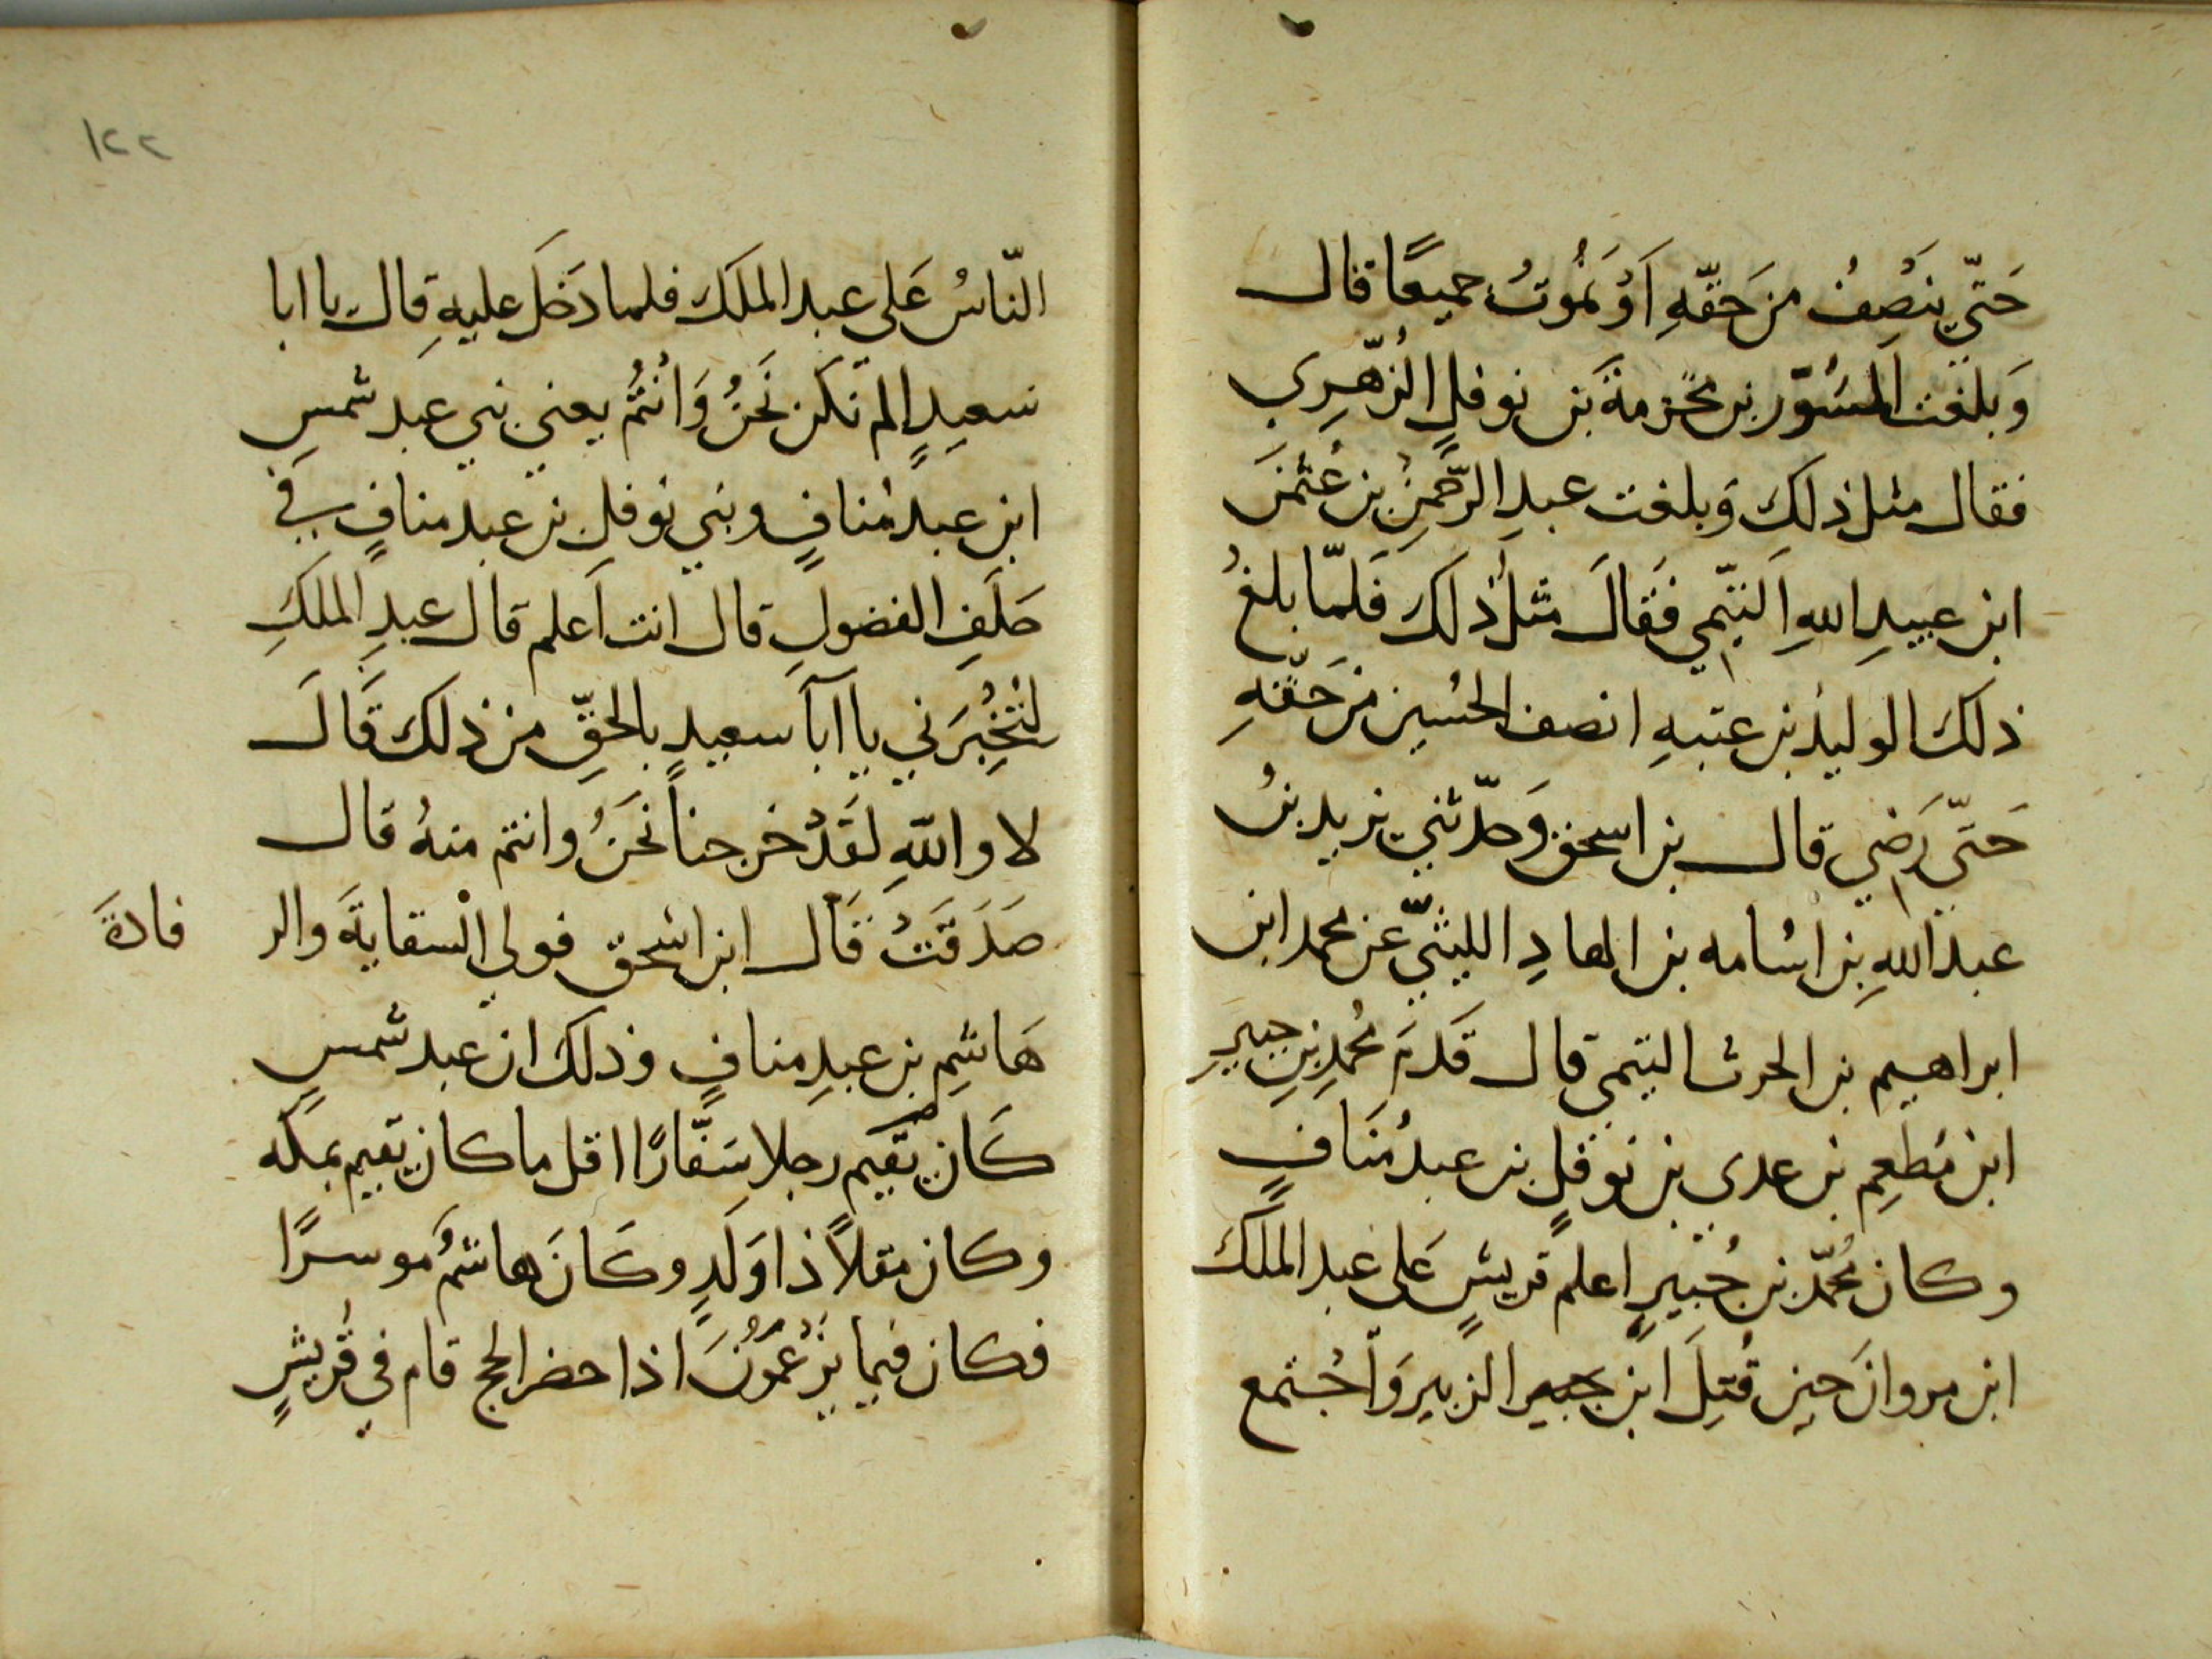 حَتّي ينَصِفُ من حَقّهِ اَوْ نمُوتُ جميعًا قال
وَبلغت المسُوّر بن مخرمةَ بن نوفلٍ الزّهرِي
فقال مثل ذلكَ وَبلغت عبدِ الرّحمنِ بن عُثمٰنَ
ابن عبيدِ اللهِ التيّمي فَقالَ مثلَ ذلكَ فَلمّا بلغُ
ذلكَ الوليدُ بن عتبهِ انصف الحسُين من حَقّهِ
حَتّي رَضي قال بن اسحق وَحدّثني يزيد بنُ
عبد اللهِ بن اسُامه بن الهادِ الليثيّ عن محمد ابن
ابراهيم بن الحرث التيمي قال قَدم محُمدِ بن جبيرِ
ابن مُطعِم بن عدي بن نوفلٍ بن عبد مُنَافٍ
وكان محُمّد بن جُبيرٍ اعلم قريشٍ عَلي عبد الملَكَ
ابن مروانَ حين قُتِلَ ابن جبير الزبير وَاجُتمع
١٢٢
النّاسُ عَلي عبد الملكَ فلما دَخَل عليهِ قال يا ابا
سعيدٍ الم نكن نَحنُ وَانُتمُ يعني بني عبد شمسِ
ابن عبد مُنافٍ وبني نوفلِ بن عبد منافٍ في
حَلَفِ الفضولِ قال انت اَعلم قال عبدِ الملكَِ
لتُخبِرَني يا اَبَا سعيدٍ بالحَقِّ من ذلكَ قَالَ
لا واللهِ لقَدْ خرجناَ نَحَنُ وانتم منهُ قال
صَدَقَتَ قَال ابن اسُحق فولي السقايَةَ والر فادَةَ
هَاشِمِ بن عبدِ منافٍ وذلكَ ان عبد شمسٍ
كَان يُقيَم رجلا سَفّارًا اقل ما كان يقيم بمكه
وكان مقلاً ذا وَلَدٍ وكَانَ هاشمُ موسرًا
فكان فيما يزْعمُونَ اذا حضر الحج قام في قُريشٍ